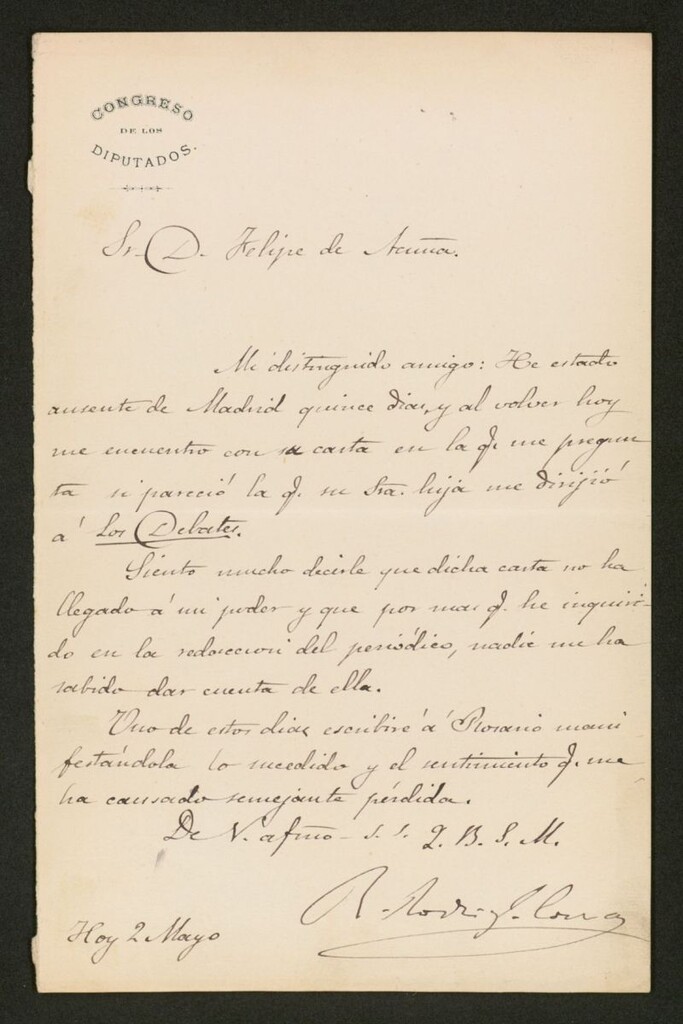 CONGRESO
DE LOS
DIPUTADOS.
Sr. D. Felipe de Acuña.
Mi distinguido amigo: He estado
ausente de Madrid quince dias, y al volver hoy
me encuentro con su carta en la q. me pregun
ta si pareció la q. su Sra. hija me dirijió
á Los Debates.
Siento mucho decirle que dicha carta no ha
llegado á mi poder y que por mas q. he inquiri-
do en la redaccion del periódico, nadie me ha
sabido dar cuenta de ella.
Uno de estos dias escribiré á Rosario mani
festándola lo sucedido y el sentimiento q. me
ha causado semejante pérdida.
De V. afmo s. s. Q. B. S. M.
R. Rodrig. Correa
Hoy 2 Mayo